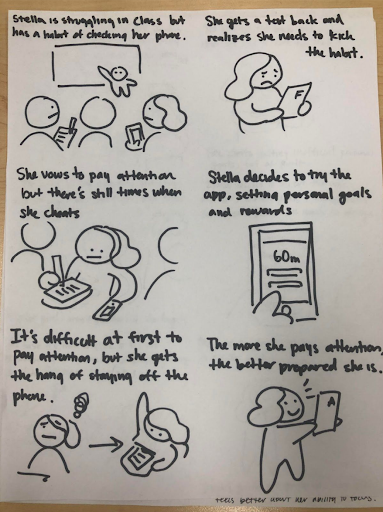 Stella is struggling in class but
has a habit of checking her phone.
She gets a test back and
realizes she needs to kick
the habit.
F
She vows to pay attention
but there's still times when
she cheats
Stella decides to try the
app, setting personal goals
and rewards
60m
It's difficult at first to
pay attention, but she gets
the hang of staying off the
phone.
The more she pays attention,
the better prepared she is.
A
feels better about her ability to focus.